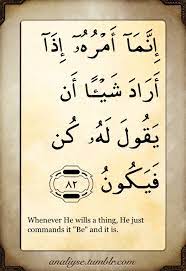 إِنَّمَآ أَمْرُهُۥٓ إِذَآ
أَرَادَ شَيْـًٔا أَن
يَقُولَ لَهُۥ كُن
فَيَكُونُ ٨٢
Whenever He wills a thing, He just
commands it "Be" and it is.
analiyse.tumblr.com